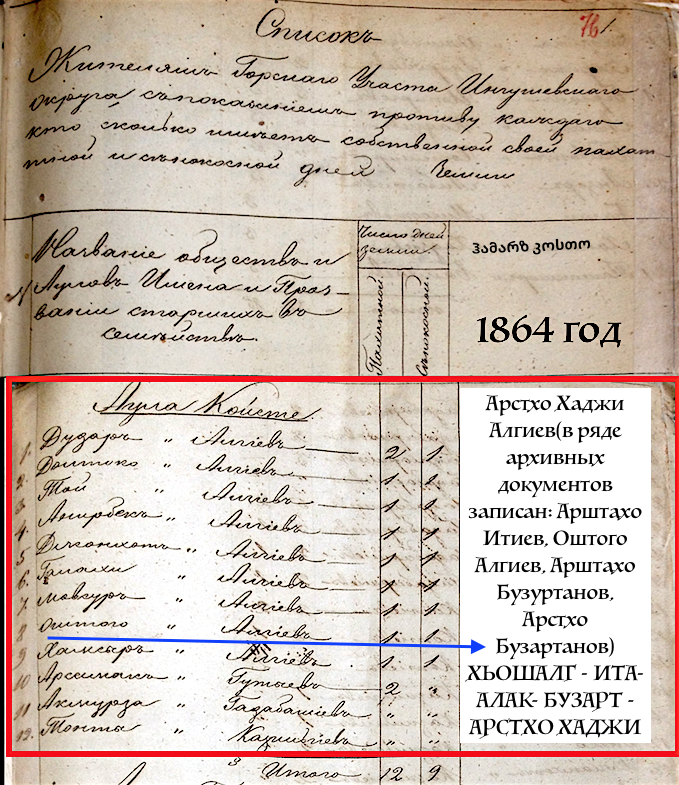 Списокъ
76 1
Жителямъ Горскаго Участка Ингушевскаго
округа съ показаніемъ противу каждаго
кто сколько имѣетъ собственной своей пахат
ной и сѣнокосной дней Земли
№
Названіе обществъ и
Ауловъ Имена и Проз-
ваніи старшихъ въ
семействѣ.
Число дней
земли.
Пахатной
Сѣнокосной.
ჰამარზ კოსტო
1864 год
Аула Койсте.
1. Дударъ " Алгіевъ 2 1
2. " Алгіевъ 1 1
3. Той " Алгіевъ 1 1
4. Амирбекъ " Алгіевъ 1 1
5. " Алгіевъ 1 1
6. " Алгіевъ 1 1
7. Мовсуръ " Алгіевъ 1 1
8 Оштого " Алгіевъ 1 1
9 " Алгіевъ 1 1
10 " Гутыевъ 2 "
11 Акмурза " Газабашіевъ " "
12. Тонта " " "
Итого 12 9
Арстхо Хаджи
Алгиев(в ряде
архивных
документов
записан: Арштахо
Итиев, Оштого
Алгиев, Арштахо
Бузуртанов,
Арстхо
Бузартанов)
ХЬОШАЛГ - ИТА-
АЛАК- БУЗАРТ -
АРСТХО ХАДЖИ